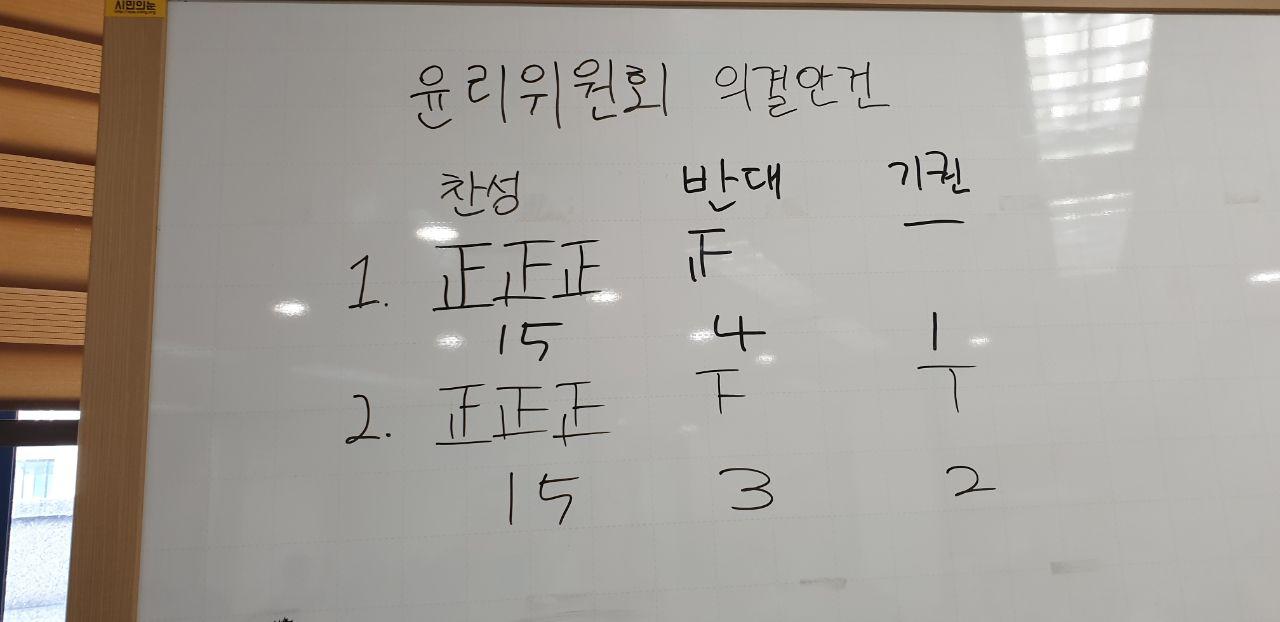 시민의눈
윤리위원회 의결안건
찬성 반대 기권
1. 正正正 𤴓 一
15 4 1
2. 正正正 下 丅
15 3 2